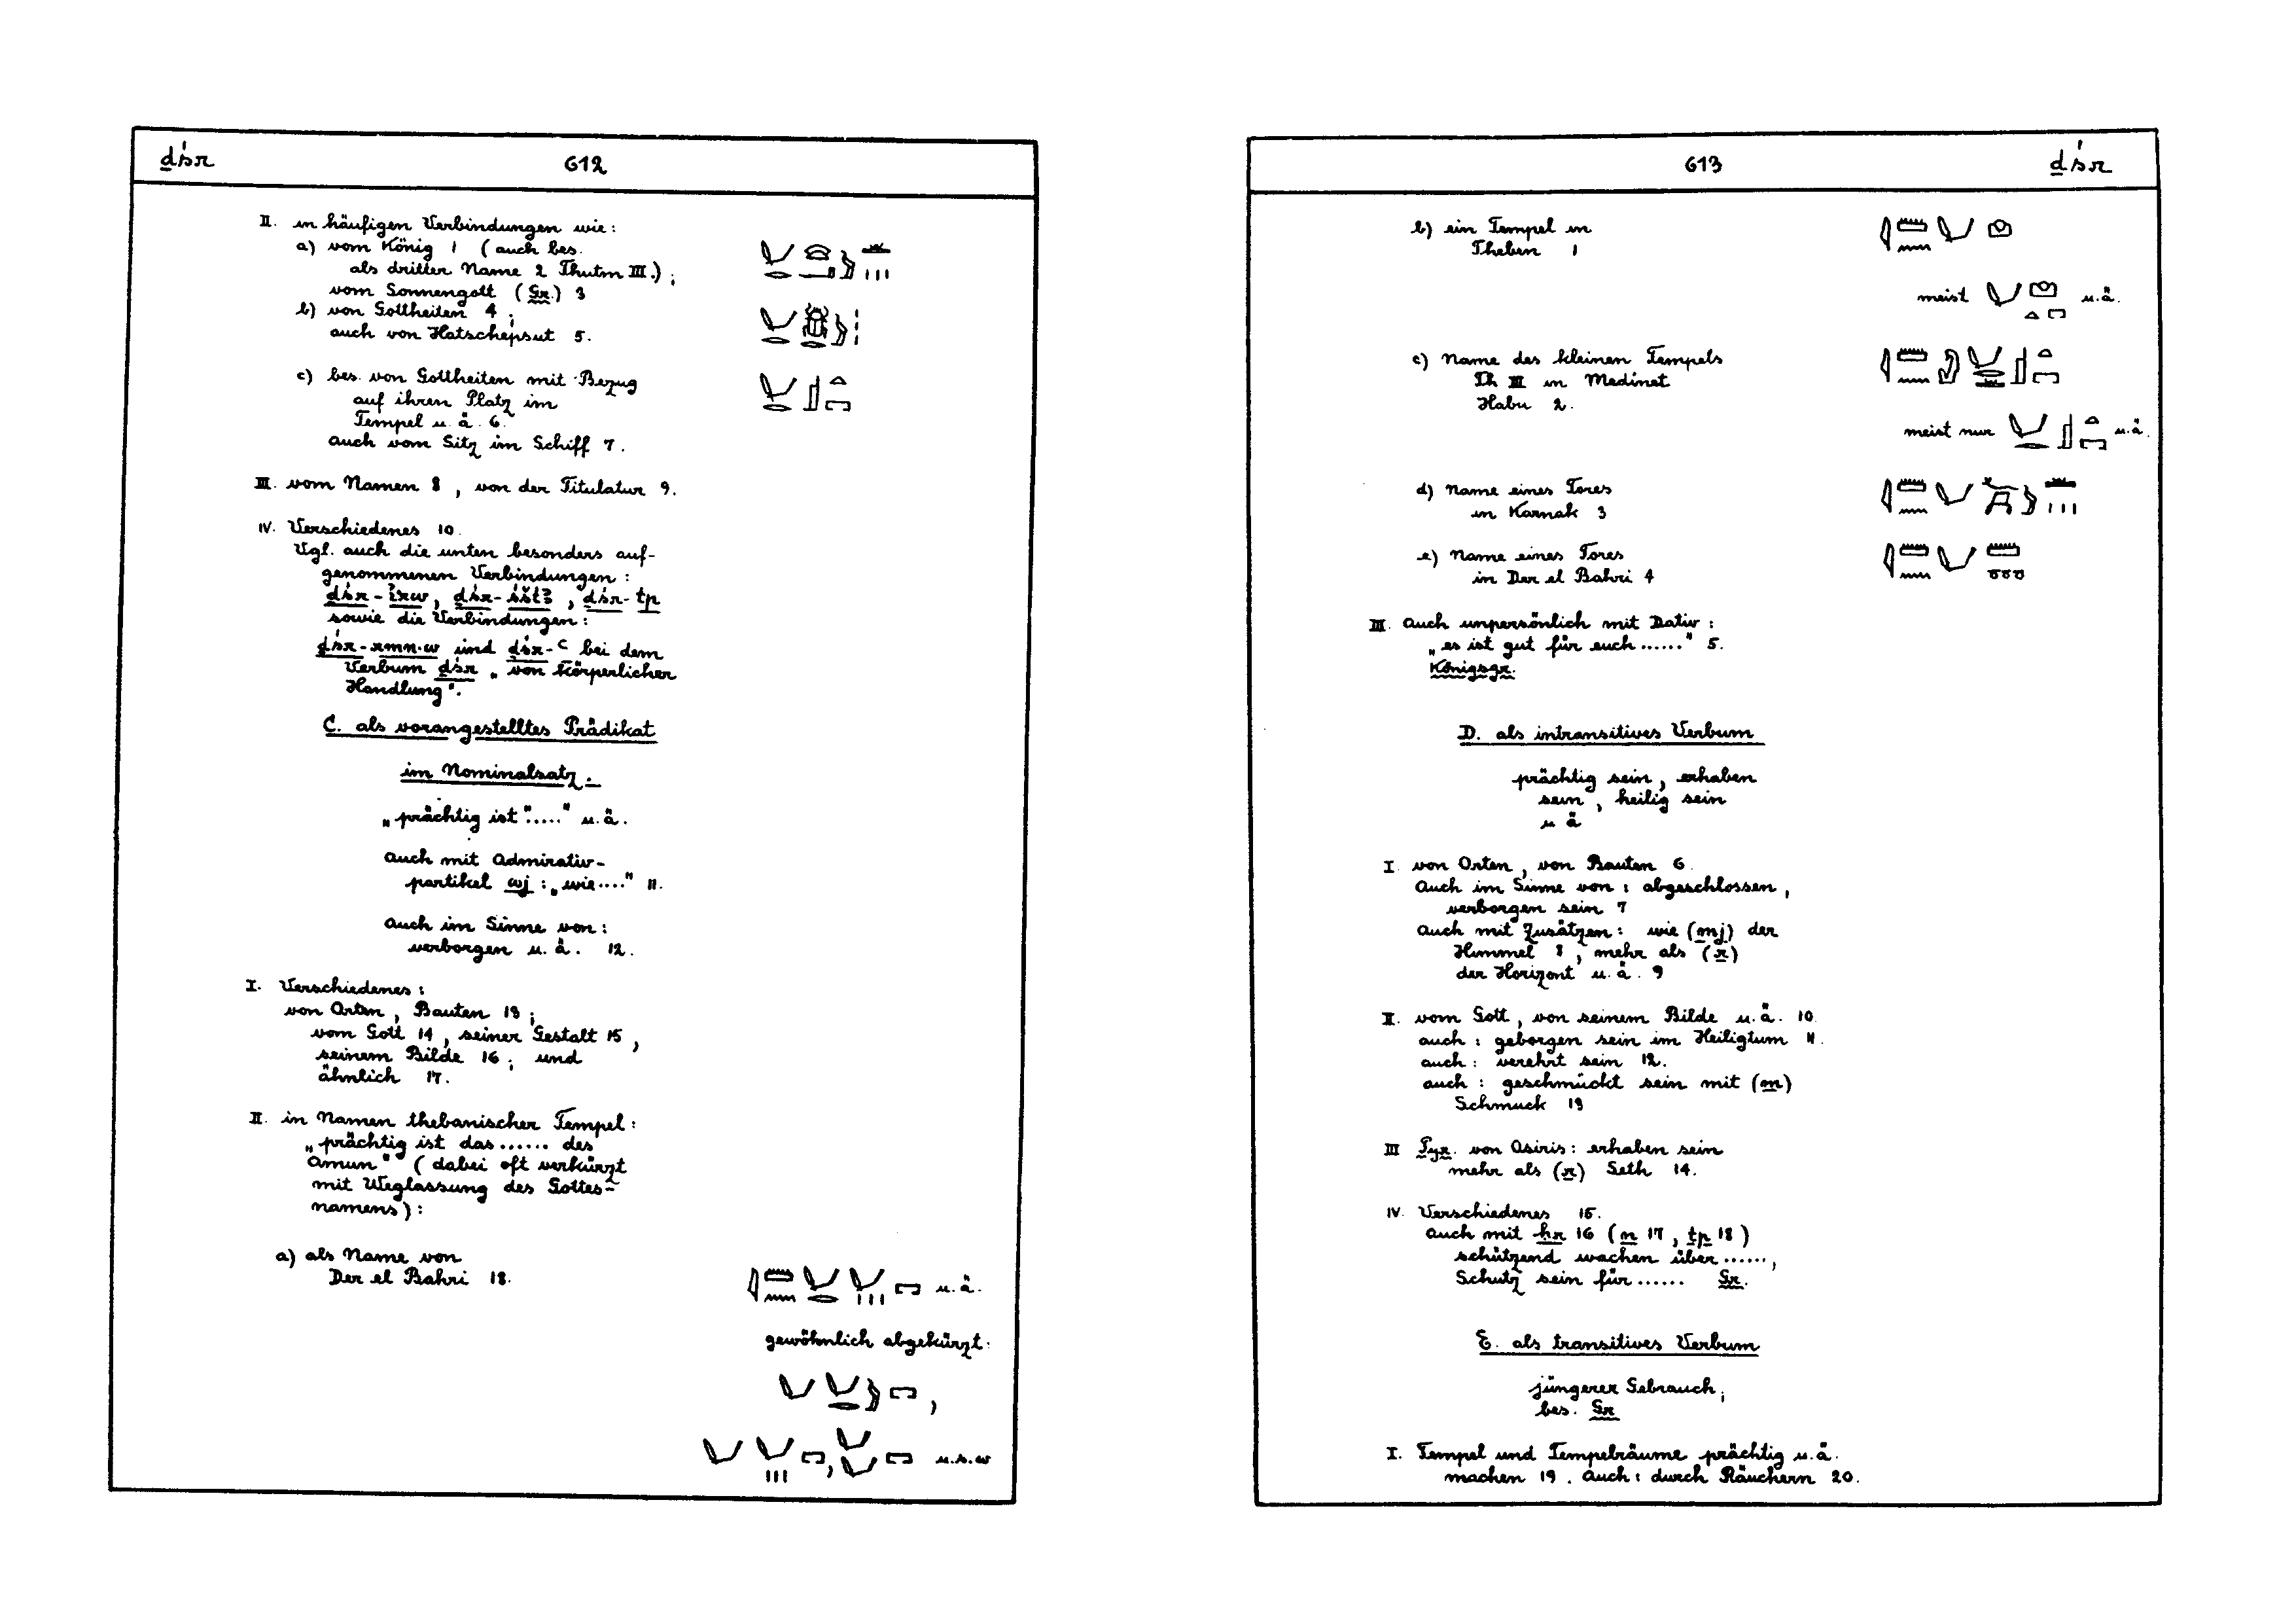 ḏśr
612
II. in häufigen Verbindungen wie:
a) vom König 1 (auch bes.
als dritter Name 2 Thutm III.);
vom Sonnengott (Gr.) 3
b) von Gottheiten 4;
auch von Hatschepsut 5.
c) bes. von Gottheiten mit Bezug
auf ihren Platz im
Tempel u. ä. 6.
auch vom Sitz im Schiff 7.
III. vom Namen 8, von der Titulatur 9.
IV. Verschiedenes 10.
Vgl. auch die unten besonders auf-
genommenen Verbindungen:
ḏśr-ꞽrw, ḏśr-śštꜣ, ḏśr-tp
sowie die Verbindungen:
ḏśr-rmn.w und ḏśr-ꜥ bei dem
Verbum ḏśr „von körperlicher
Handlung".
C. als vorangestelltes Prädikat
im Nominalsatz.
„prächtig ist "....." u. ä.
auch mit Admirativ-
partikel wj: „wie...." 11.
auch im Sinne von:
verborgen u. ä. 12.
I. Verschiedenes:
von Orten, Bauten 13;
vom Gott 14, seiner Gestalt 15,
seinem Bilde 16; und
ähnlich 17.
II. in Namen thebanischer Tempel:
„prächtig ist das ...... des
Amun" (dabei oft verkürzt
mit Weglassung des Gottes-
namens):
a) als Name von
Der el Bahri 18.
u. ä.
gewöhnlich abgekürzt:
,
, u.s.w
613
ḏśr
b) ein Tempel in
Theben 1
meist u. ä.
c) Name des kleinen Tempels
Th III in Medinet
Habu 2.
meist nur u. ä.
d) Name eines Tores
in Karnak 3
e) Name eines Tores
in Der el Bahri 4
III. auch unpersönlich mit Dativ:
„es ist gut für euch ......" 5.
Königsgr.
D. als intransitives Verbum
prächtig sein, erhaben
sein, heilig sein
u ä
I von Orten, von Bauten 6.
Auch im Sinne von: abgeschlossen,
verborgen sein 7
auch mit Zusätzen: wie (mj) der
Himmel 8, mehr als (r)
der Horizont u. ä. 9
II. vom Gott, von seinem Bilde u. ä. 10.
auch: geborgen sein im Heiligtum 11.
auch: verehrt sein 12.
auch: geschmückt sein mit (m)
Schmuck 13
III Pyr. von Osiris: erhaben sein
mehr als (r) Seth 14.
IV. Verschiedenes 15.
auch mit ḥr 16 (n 17, tp 18)
schützend wachen über ......,
Schutz sein für ...... Gr.
E. als transitives Verbum
jüngerer Gebrauch;
bes. Gr
I. Tempel und Tempelräume prächtig u. ä.
machen 19. Auch: durch Räuchern 20.